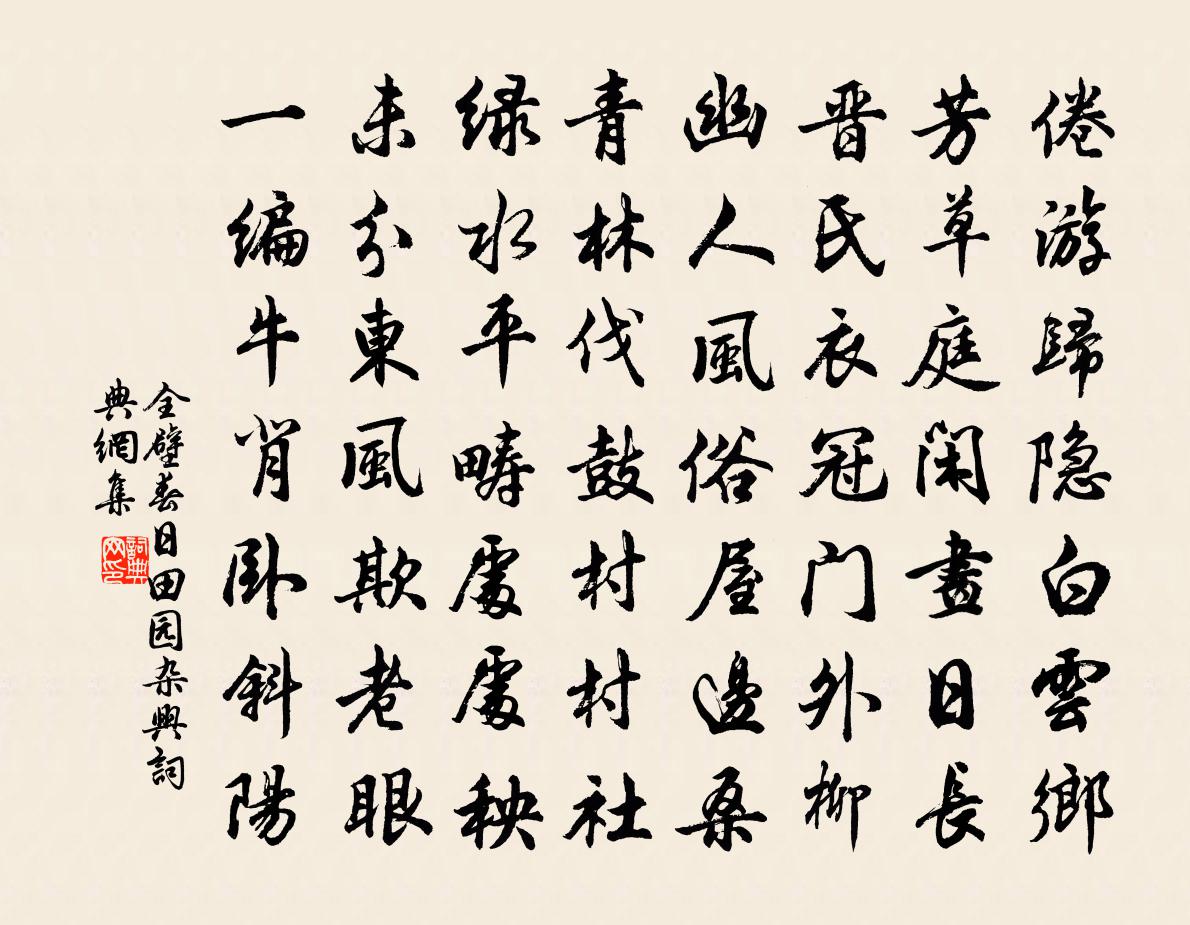 倦游歸隐白雲鄉
芳草庭闲晝日長
晋民衣冠门外柳
幽人風俗屋邊桑
青林伐鼓村村社
绿水平疇處處秧
未分東風欺老眼
一编牛背卧斜陽
全璧春日田园杂興詞
典網集
詞典
网印